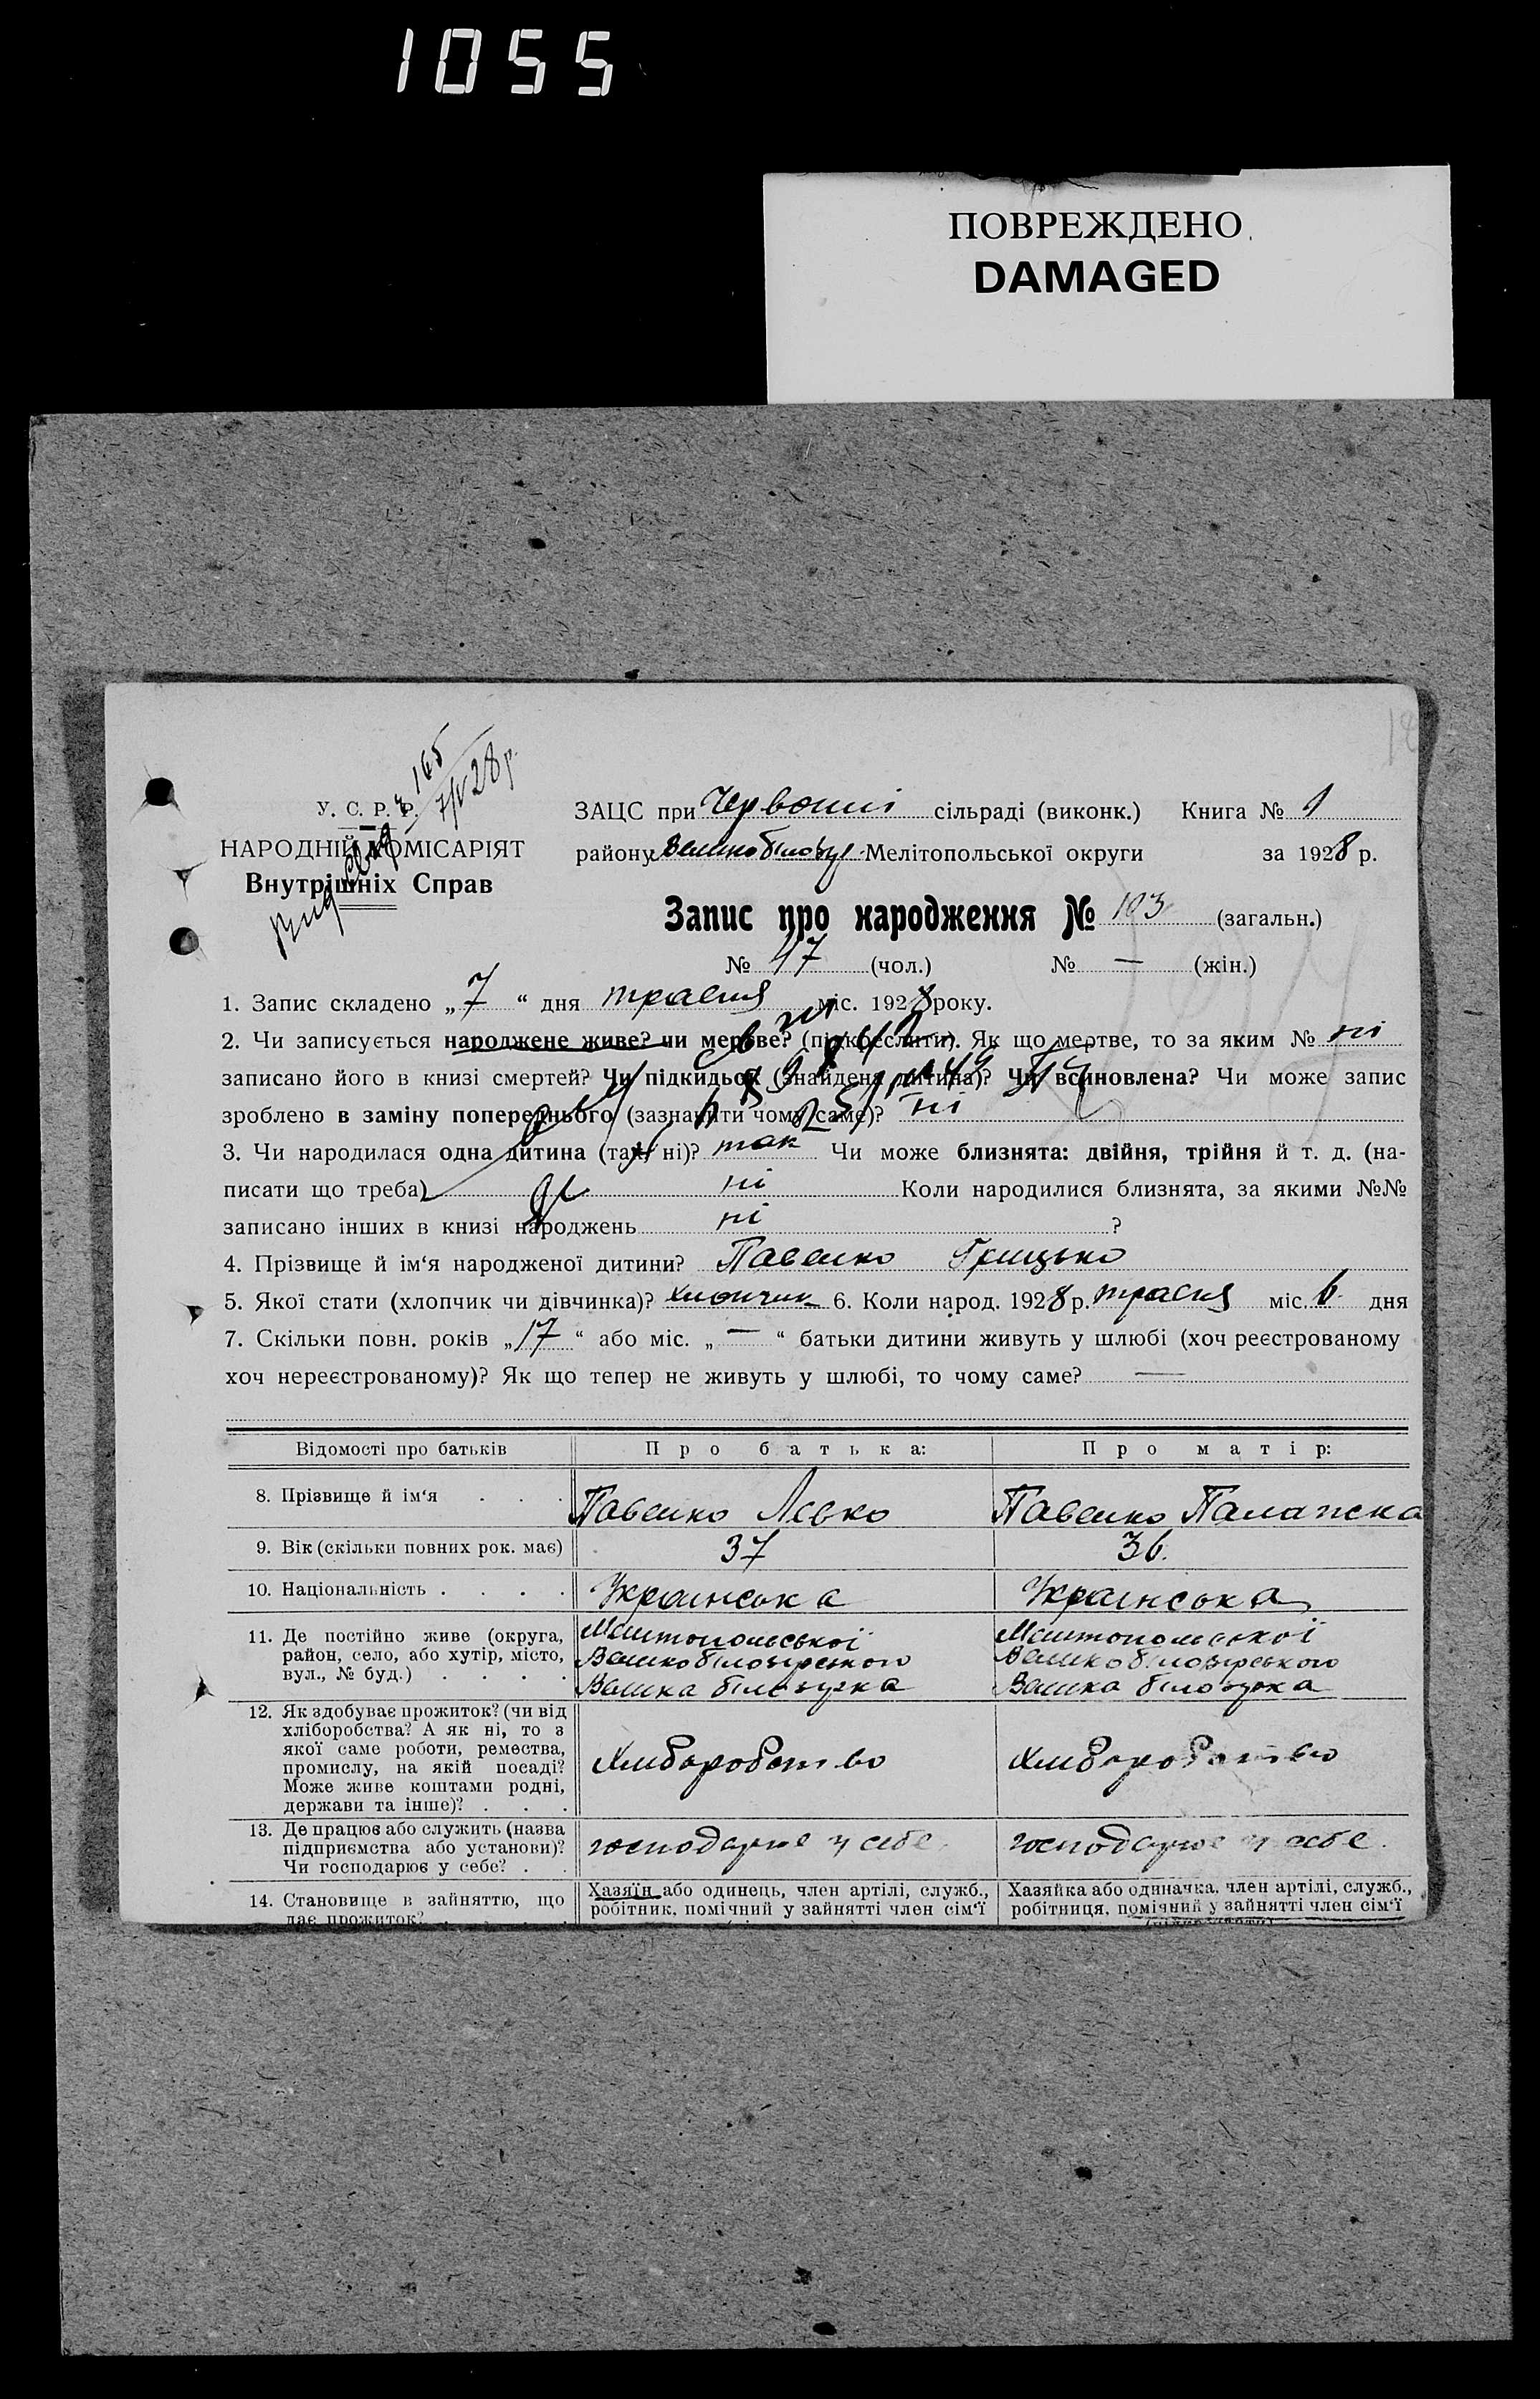 1055
ПОВРЕЖДЕНО
DAMAGED
У. С. Р. Р.
НАРОДНІЙ КОМІСАРІЯТ
Внутрішніх Справ
165
7/V 28 р.
ЗАЦС при Червоній сільраді (виконк.) Книга № 1
району Великобілозер. Мелітопольської округи за 1928 р.
Запис про народження № 103 (загальн.)
№ 47 (чол.) № — (жін.)
1. Запис складено „7“ дня травня міс. 1928 року.
2. Чи записується народжене живе? чи мертве? (підкреслити). Як що мертве, то за яким № ні
записано його в книзі смертей? Чи підкидьок (знайдена дитина)? Чи всиновлена? Чи може запис
зроблено в заміну попереднього (зазначити чому саме)? ні
3. Чи народилася одна дитина (так, ні)? так Чи може близнята: двійня, трійня й т. д. (на-
писати що треба) ні Коли народилися близнята, за якими №№
записано інших в книзі народжень ні ?
4. Прізвище й ім‘я народженої дитини? Павенко Грицько
5. Якої стати (хлопчик чи дівчинка)? хлопчик 6. Коли народ. 1928 р. травня міс. 6 дня
7. Скільки повн. років „17“ або міс. „—“ батьки дитини живуть у шлюбі (хоч реєстрованому
хоч нереєстрованому)? Як що тепер не живуть у шлюбі, то чому саме? —
Відомості про батьків Про батька: Про матір:
8. Прізвище й ім‘я . . . Павенко Левко Павенко Палажка
9. Вік (скільки повних рок. має) 37 36.
10. Національність . . . . Українська Українська
11. Де постійно живе (округа, Мелітопольської Мелітопольської
район, село, або хутір, місто, Великобілозерського Великобілозерського
вул., № буд.) . . . . Велика Білозерка Велика Білозерка
12. Як здобуває прожиток? (чи від
хліборобства? А як ні, то з
якої саме роботи, ремества,
промислу, на якій посаді? Хліборобство Хліборобство
Може живе коштами родні,
держави та інше)? . . .
13. Де працює або служить (назва
підприємства або установи)? господарює у себе. господарює у себе.
Чи господарює у себе? . .
14. Становище в зайняттю, що Хазяїн або одинець, член артілі, служб., Хазяйка або одиначка, член артілі, служб.,
дає прожиток? робітник, помічний у зайнятті член сім‘ї робітниця, помічний у зайнятті член сім‘ї